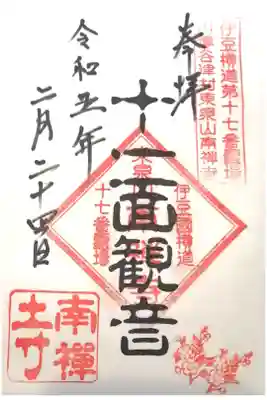 伊豆横道第十七番霊場
谷津村東泉山南禅寺
奉拝
十一面観音
令和五年
二月二十四日
伊豆國横道
十七番霊場
南禪寺